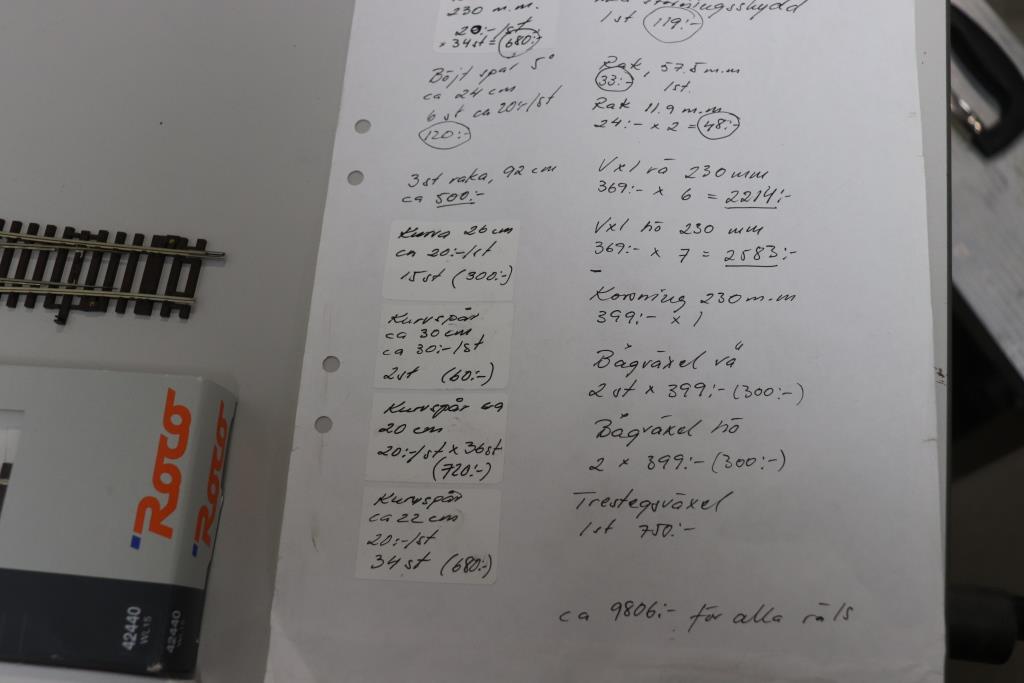 230 m.m.
20:-/st
× 34st = 680:-
Böjt spår 5°
ca 24 cm
6 st ca 20:-/st
120:-
3st raka, 92 cm
ca 500:-
Kurva 26 cm
ca 20:-/st
15st (300:-)
Kurvspår
ca 30 cm
ca 30:-/st
2st (60:-)
Kurvspår ca
20 cm
20:-/st × 36st
(720:-)
Kurvspår
ca 22 cm
20:-/st
34st (680:-)
1st 119:-
Rak, 57.5 m.m
33:- 1st.
Rak 11.9 m.m
24:- × 2 = 48:-
Vxl vä 230 mm
369:- × 6 = 2214:-
Vxl hö 230 mm
369:- × 7 = 2583:-
Korsning 230 m.m
399:- × 1
Bågväxel vä
2 st × 399:- (300:-)
Bågväxel hö
2 × 399:- (300:-)
Trestegsväxel
1st 750:-
ca 9806:- för alla räls
Roco
Roco
42440
WL15
42440